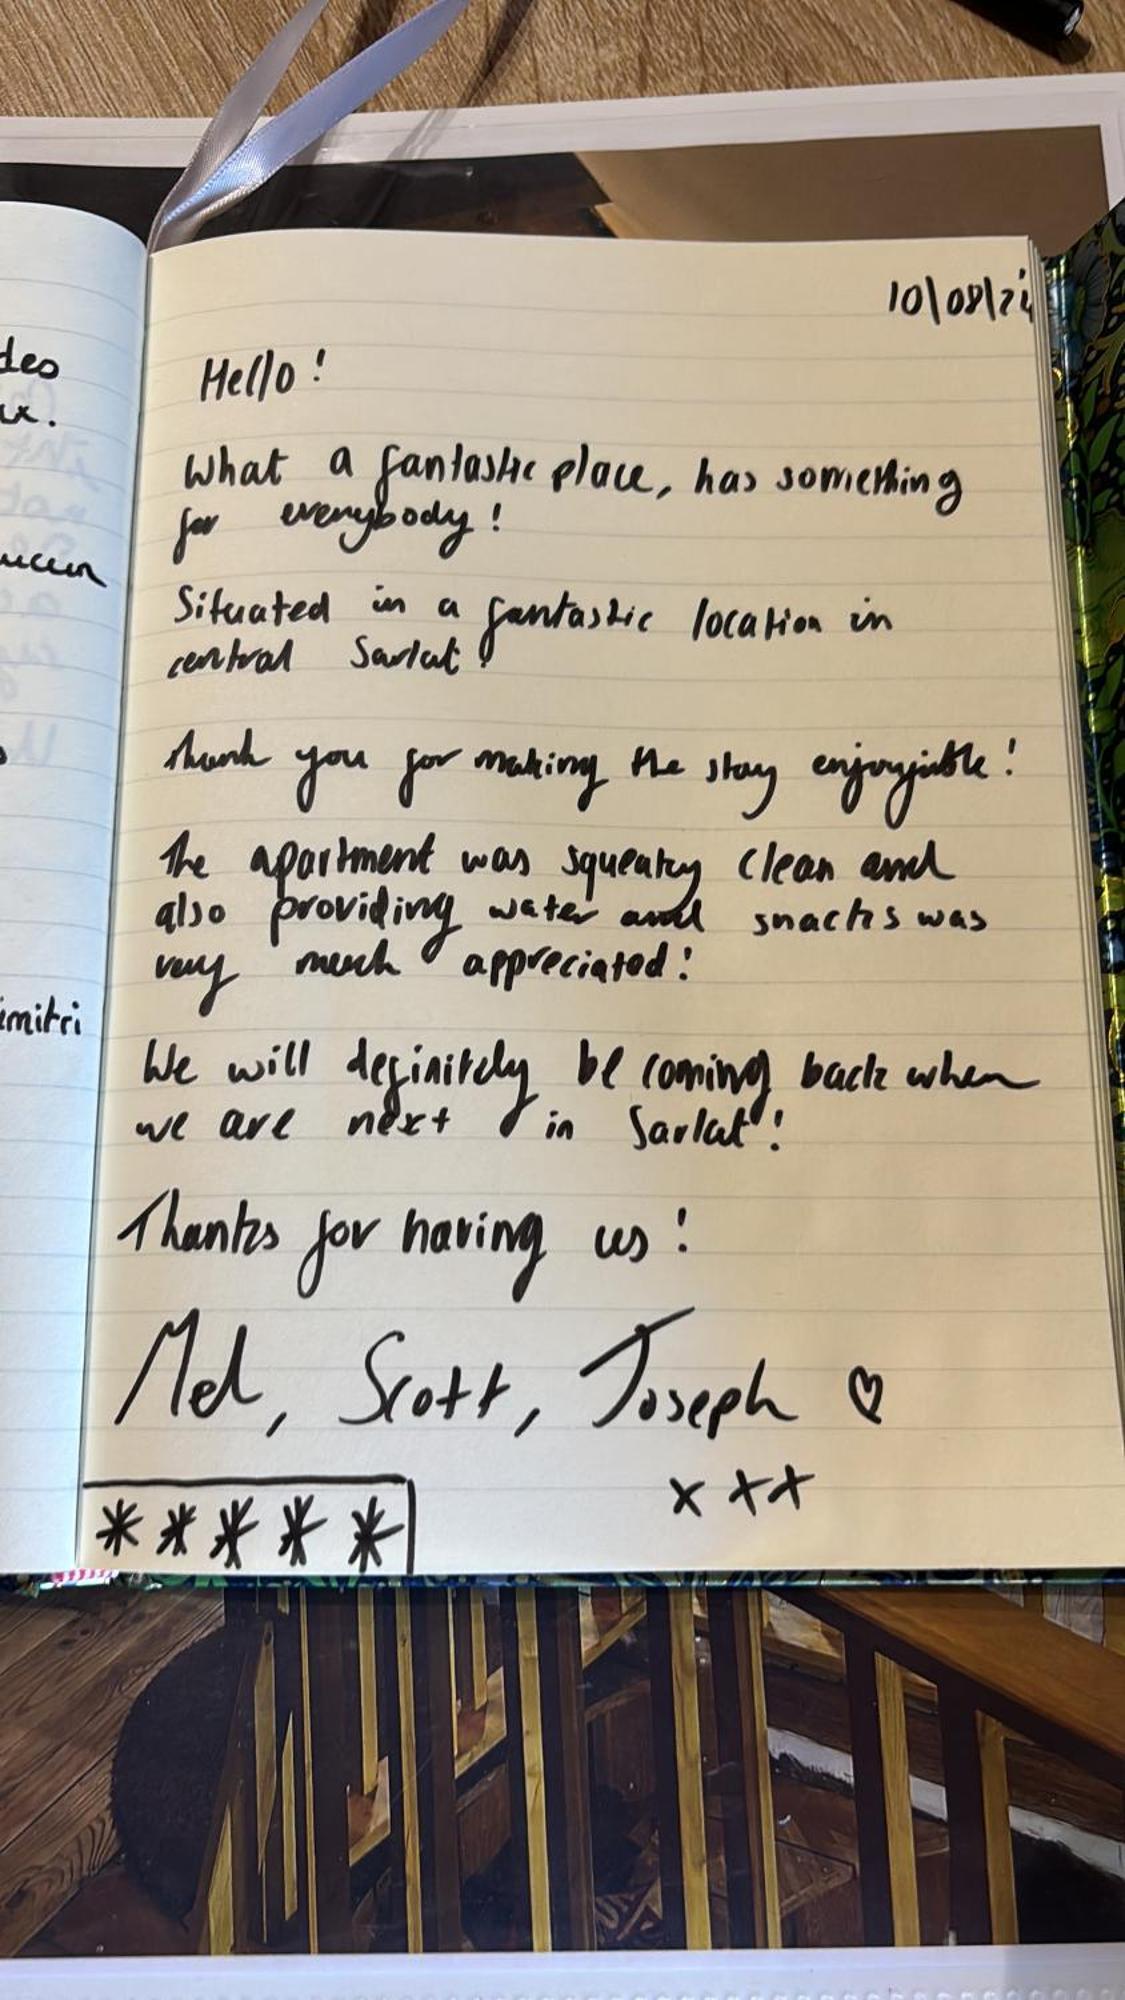 des
ux.
imitri
10\08\24
Hello!
What a fantastic place, has something
for everybody!
Situated in a fantastic location in
central Sarlat!
Thank you for making the stay enjoyjable!
The apartment was squeaky clean and
also providing water and snacks was
very much appreciated!
We will definitely be coming back when
we are next in Sarlat!
Thanks for having us!
Mel, Scott, Joseph ♡
x x x
* * * * *